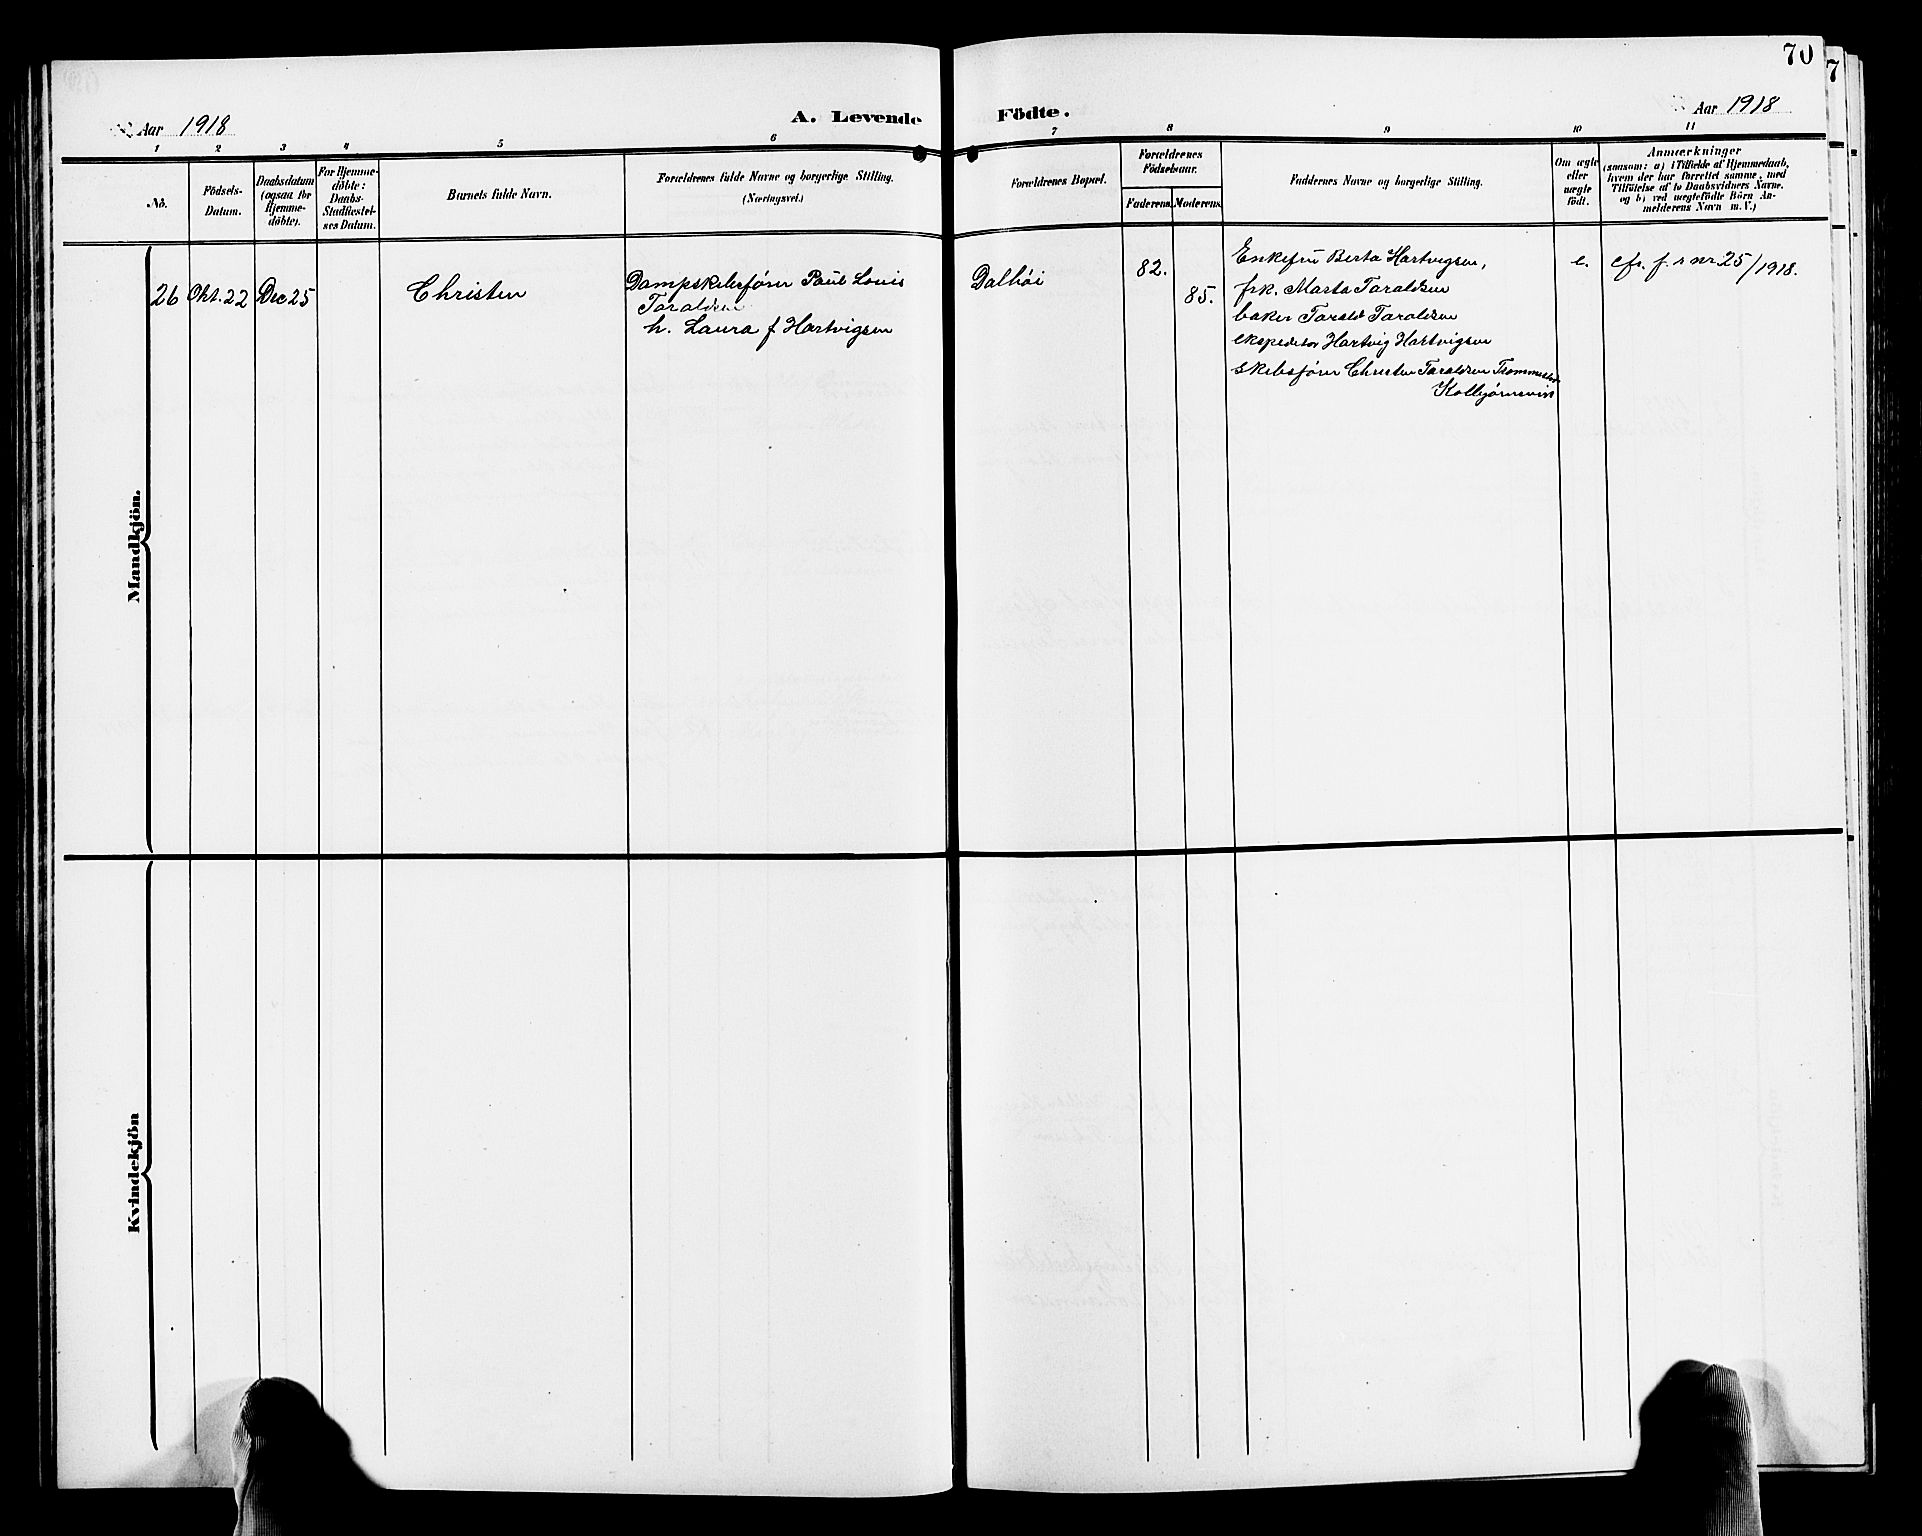 70
7
Aar 1918
A. Levende
Födte.
Aar 1918
1 2 3 4 5 6 7 8 9 10 11
No.
Födsels-
Datum.
Daabsdatum
(ogsaa for
Hjemme-
döbte).
For Hjemme-
döbte:
Daabs-
Stadfæstel-
ses Datum.
Barnets fulde Navn.
Forældrenes fulde Navne og borgerlige Stilling.
(Næringsvei.)
Forældrenes Bopæl.
Forældrenes
Födselsaar.
Faderens.
Moderens.
Faddernes Navne og borgerlige Stilling.
Om ægte
eller
uægte
födt.
Anmærkninger
(saasom: a) i Tilfælde af Hjemmedaab,
hvem der har forrettet samme, med
Tilföielse af to Daabsvidners Navne.
og b) ved uægtefödte Börn An-
melderens Navn m. V.)
Mandkjön.
26
Okt. 22
Dec 25
Christen
Dampskibsfører Paul Louis
Taraldsen
h. Laura f Hartvigsen
Dalhøi
82.
85.
Enkefru Berta Hartvigsen,
frk. Marta Taraldsen
baker Tarald Taraldsen
ekspeditør Hartvig Hartvigsen
skibsfører Christen Taraldsen
Kolbjørnsvik
e.
cfr. f. s nr. 25/1918.
Kvindekjön